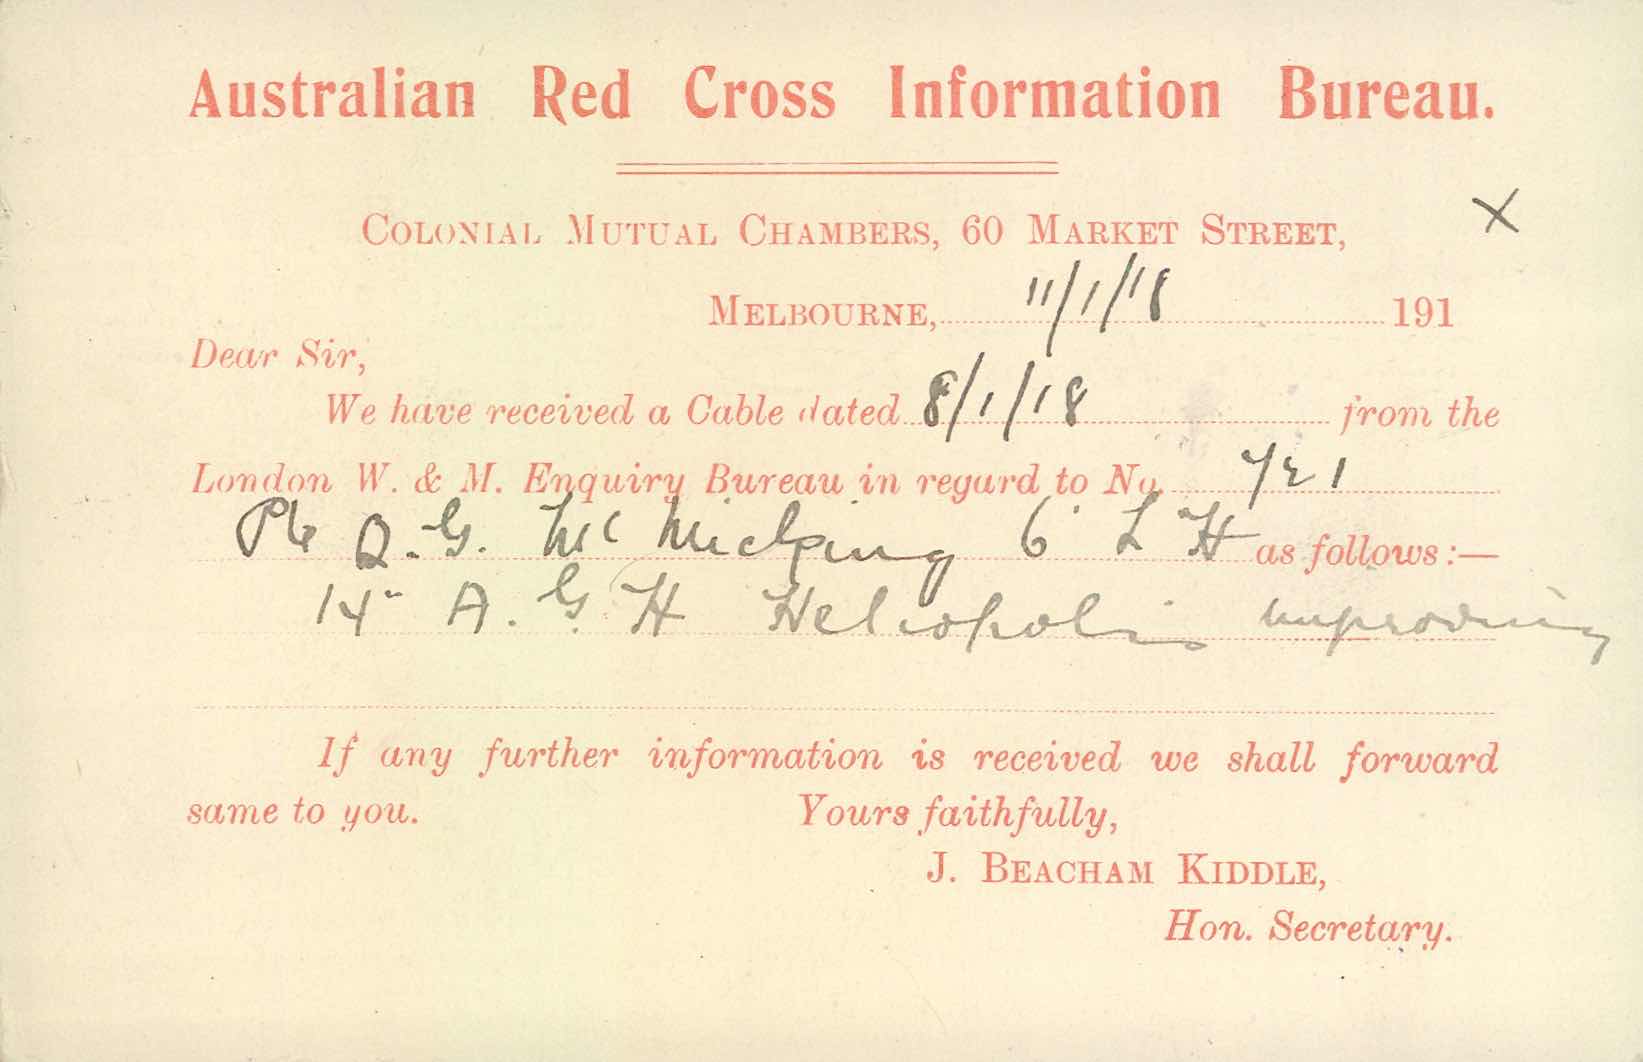 Australian Red Cross Information Bureau.
COLONIAL MUTUAL CHAMBERS, 60 MARKET STREET,
X
MELBOURNE, 11/1/18 191
Dear Sir,
We have received a Cable dated 8/1/18 from the
London W. & M. Enquiry Bureau in regard to No. 721
Pte Q. G. McMicking 6 L H as follows:—
14" A. G. H Heliopolis improving
If any further information is received we shall forward
same to you. Yours faithfully,
J. BEACHAM KIDDLE,
Hon. Secretary.